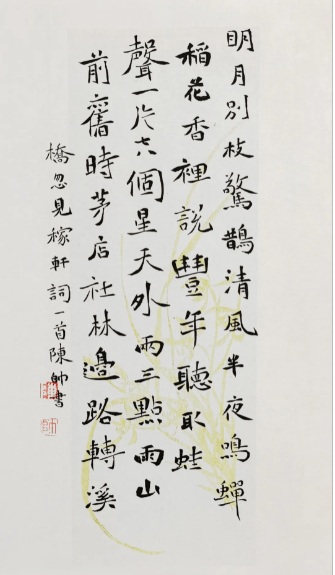 明月別枝驚鵲清風半夜鳴蟬
稻花香裡說豐年聽取蛙
聲一片七八個星天外兩三點雨山
前舊時茅店社林邊路轉溪
橋忽見稼軒詞一首陳帥書